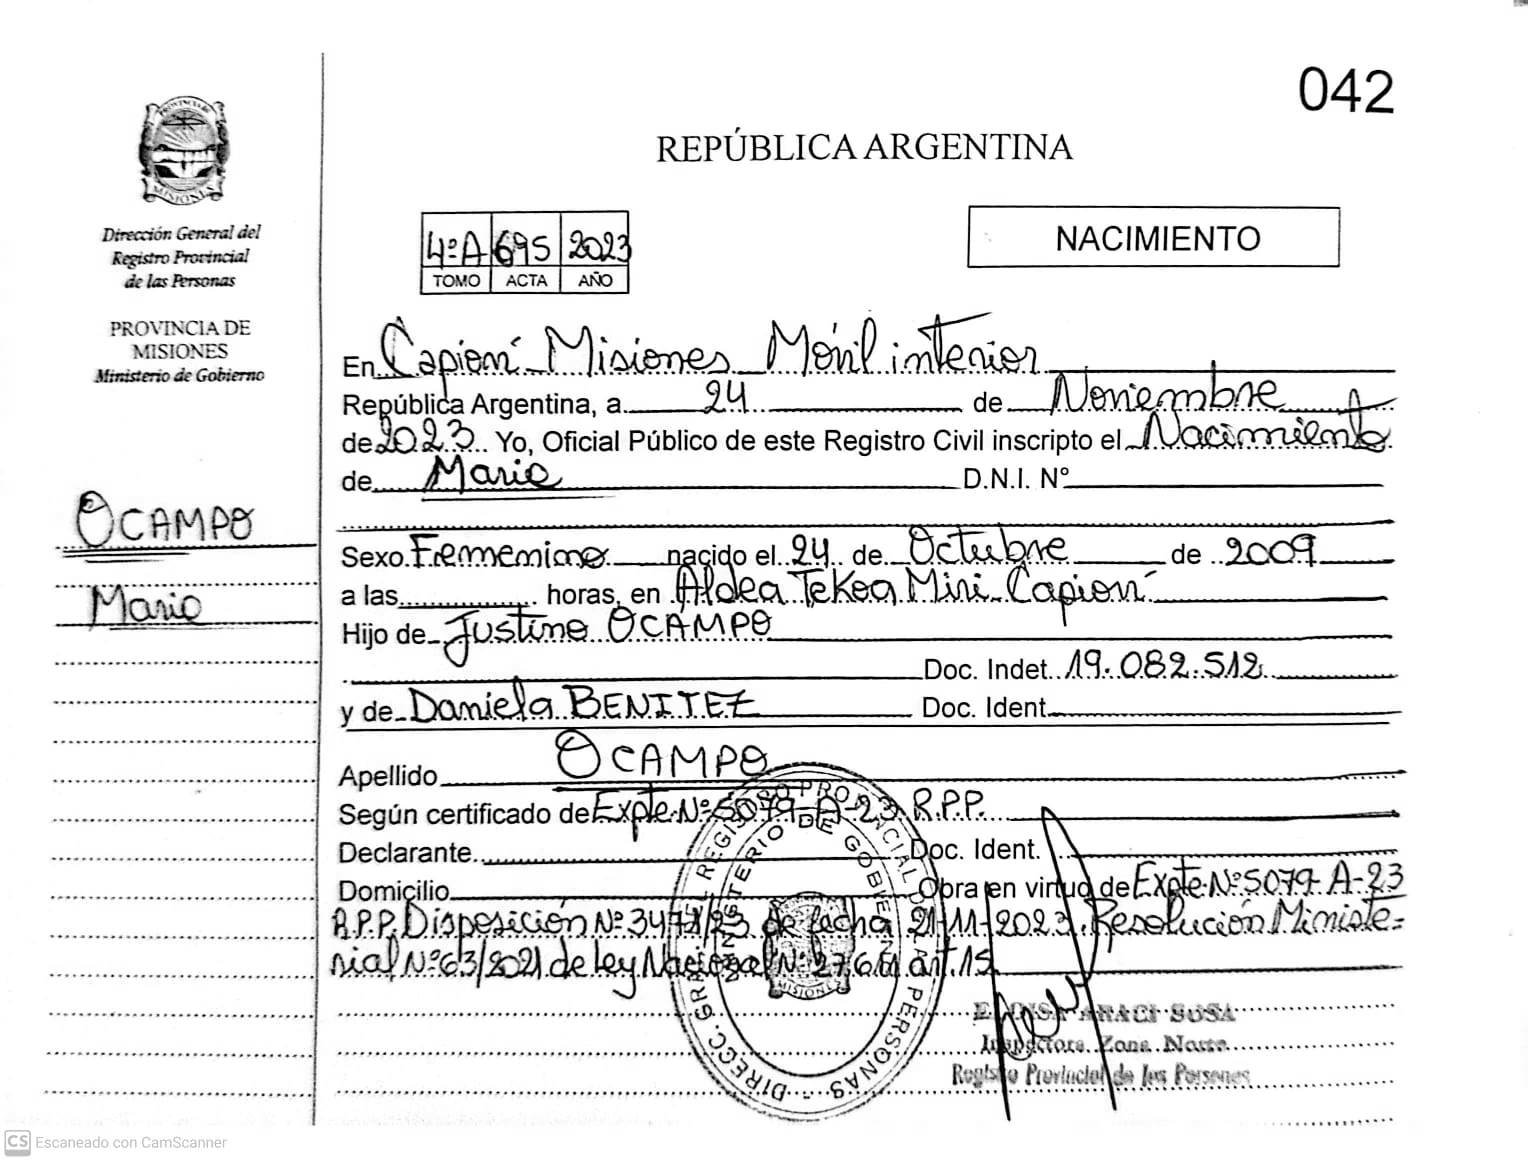 042
REPÚBLICA ARGENTINA
PROVINCIA DE
MISIONES
Dirección General del
Registro Provincial
de las Personas
PROVINCIA DE
MISIONES
Ministerio de Gobierno
4º A 695 2023
TOMO ACTA AÑO
NACIMIENTO
En Capioví Misiones Móvil interior
República Argentina, a 24 de Noviembre
de 2023. Yo, Oficial Público de este Registro Civil inscripto el Nacimiento
de Maria D.N.I. Nº
OCAMPO
Maria
Sexo Femenino nacido el 24 de Octubre de 2009
a las horas, en Aldea Tekoa Mini Capioví
Hijo de Justino OCAMPO
Doc. Indet. 19.082.512
y de Daniela BENITEZ Doc. Ident.
Apellido OCAMPO
Según certificado de Expte Nº 5079 A-23 R.P.P.
Declarante Doc. Ident.
Domicilio Obra en virtud de Expte Nº 5079 A-23
R.P.P. Disposición Nº 3471/23 de fecha 21-11-2023. Resolución Ministe=
rial Nº 63/2021 de Ley Nacional Nº 27.611 art. 15
DIRECC. GRAL. DE REGISTRO PROVINCIAL DE LAS PERSONAS
MINISTERIO DE GOBIERNO
MISIONES
ARACI SOSA
Inspectora Zona Norte
Registro Provincial de las Personas
CS Escaneado con CamScanner